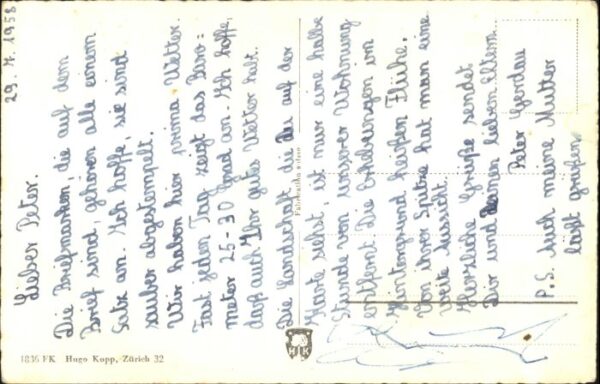 29.7.1958
Lieber Peter.
Die Briefmarken die auf dem
Brief sind, gehören alle einem
Satz an. Ich hoffe, sie sind
sauber abgestempelt.
Wir haben hier prima Wetter.
Fast jeden Tag zeigt das Baro=
meter 25-30 Grad an. Ich hoffe,
daß auch Ihr gutes Wetter habt.
Die Landschaft die Du auf der
Karte siehst, ist nur eine halbe
Stunde von unserer Wohnung
entfernt. Die Erhebungen im
Hintergrund heißen Flühe.
Von ihrer Spitze hat man eine
weite Aussicht.
Herzliche Grüße sendet
Dir und Deinen lieben Eltern
Peter Gerdau
P.S. Auch meine Mutter
läßt grüßen.
Fabrication suisse
HK
1836 FK Hugo Kopp, Zürich 32